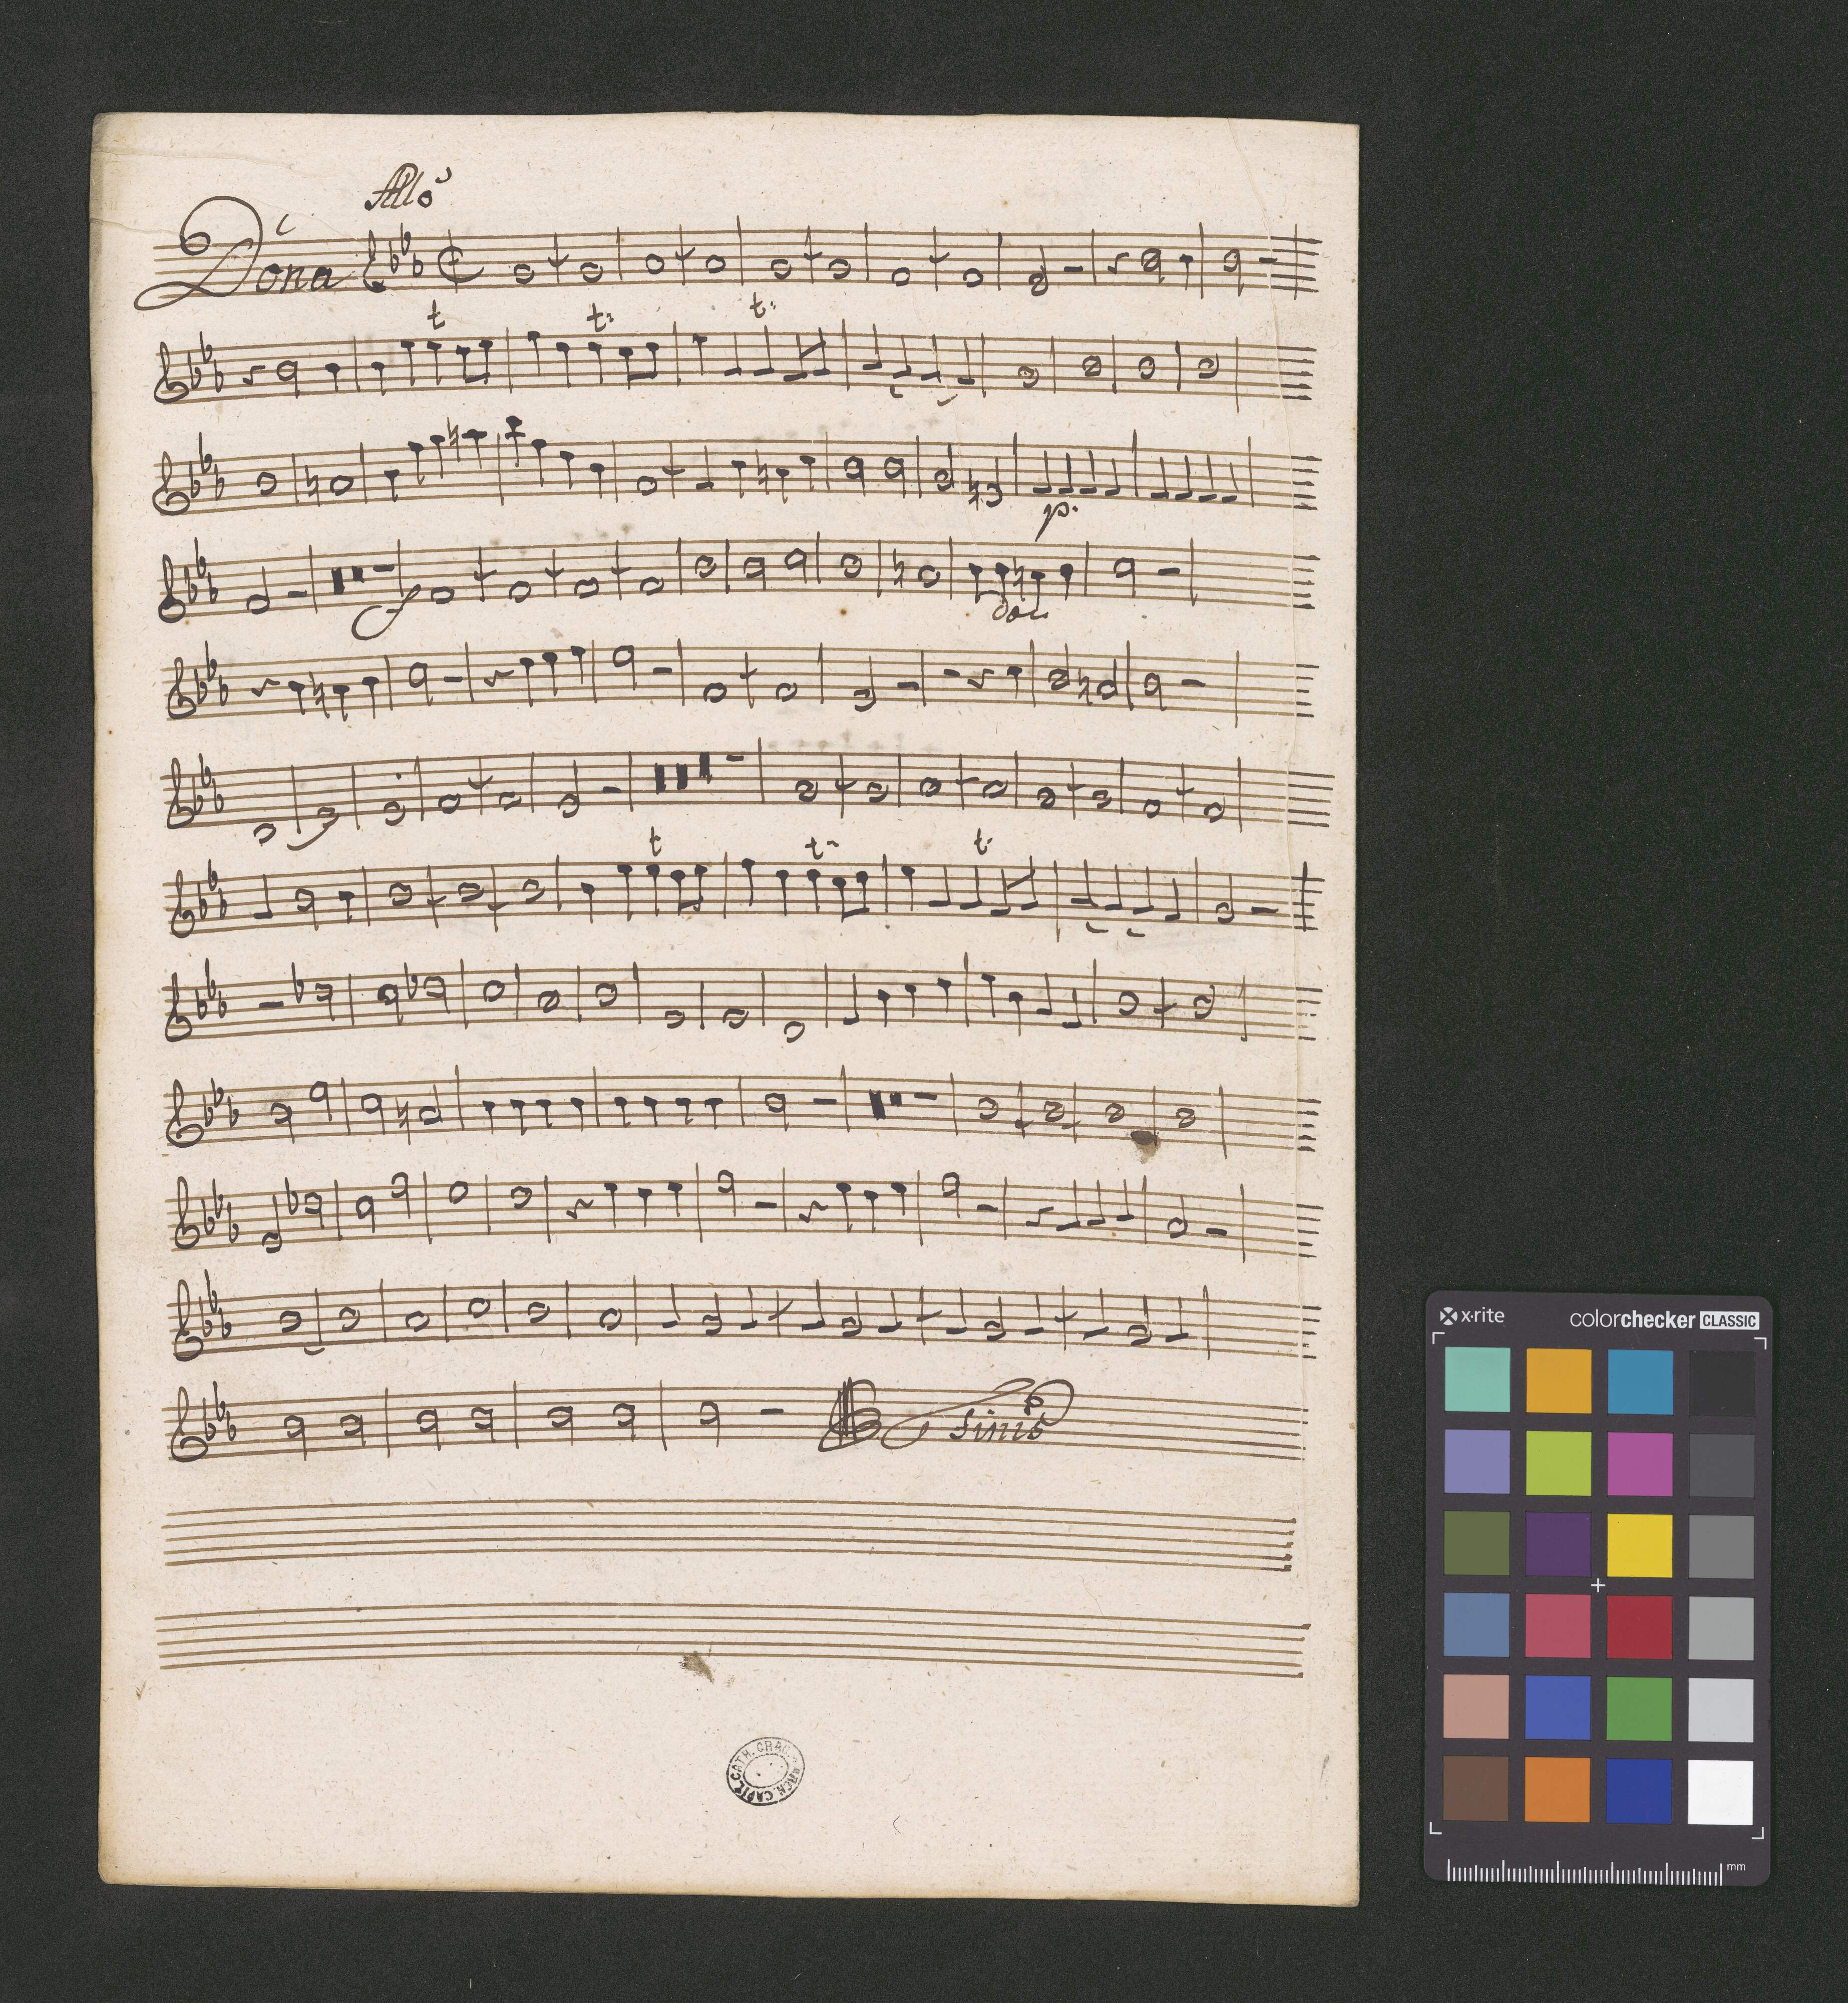 Allo
Dona
t t: t:
p.
f dol
t t~ t.
Finis
CATH. CRAC. ARCH. CAPIT.
x-rite colorchecker CLASSIC
mm